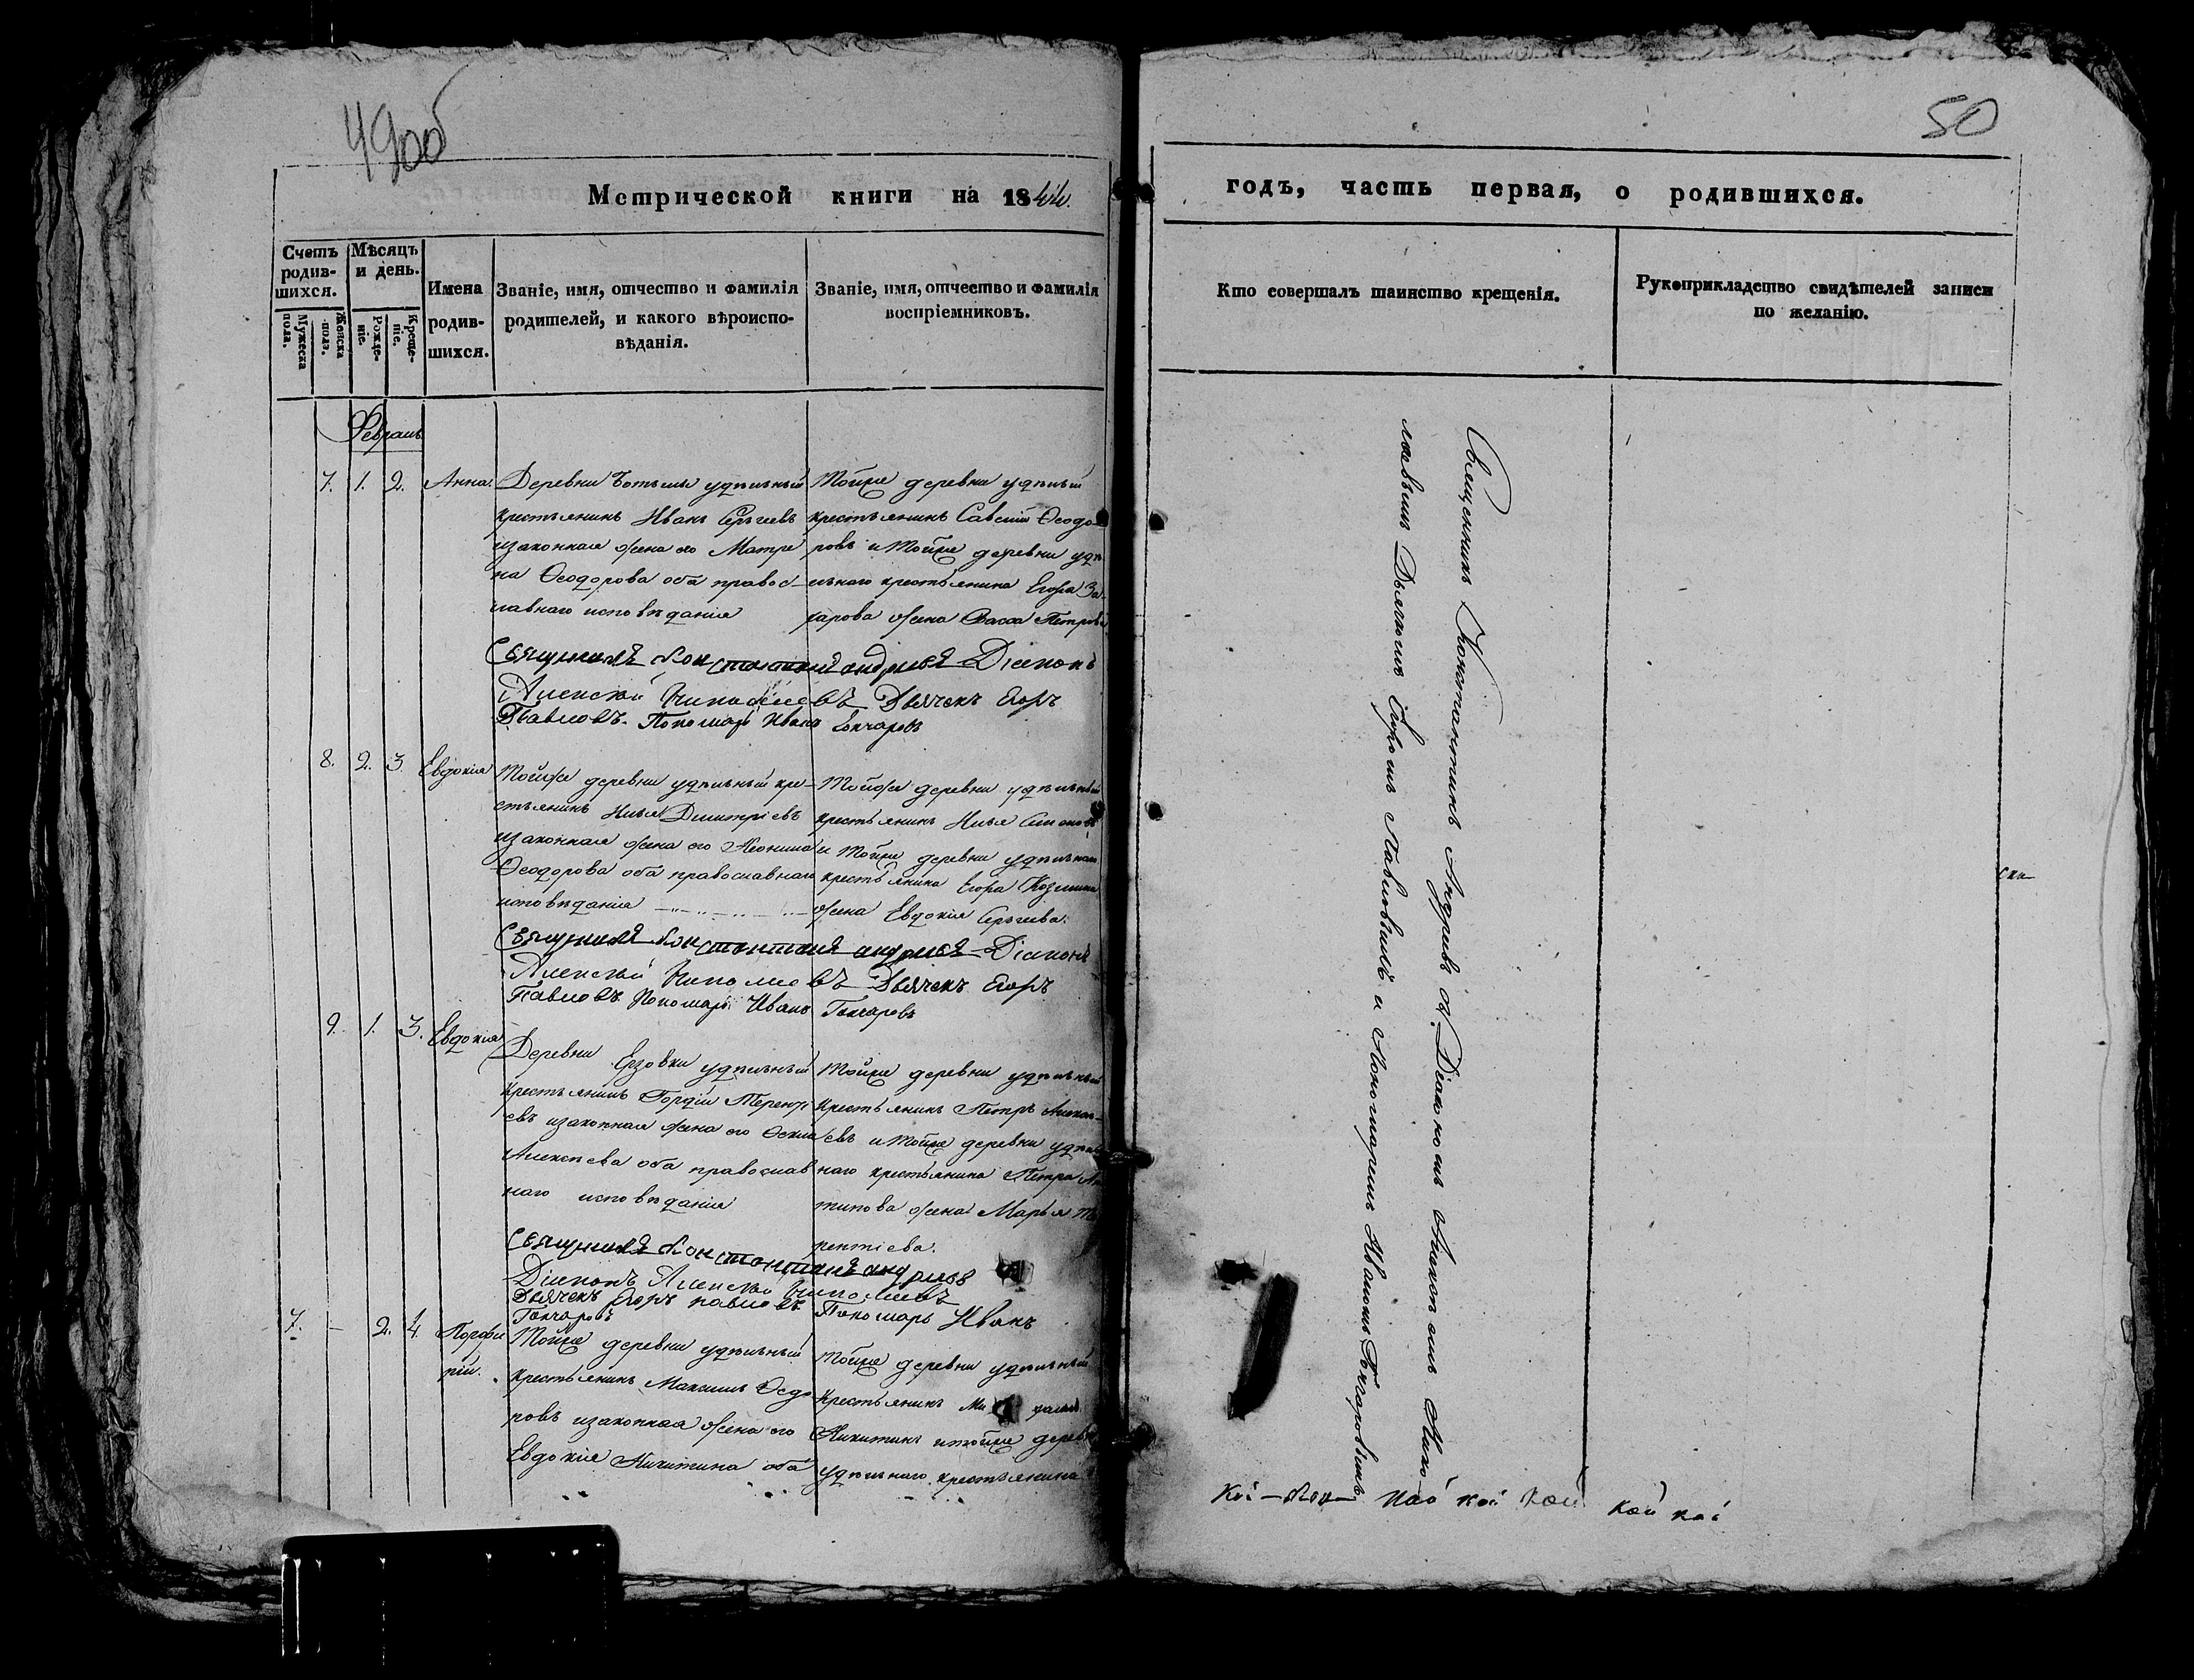 49об
50
Метрической книги на 1844.
годъ, часть первая, о родившихся.
Счетъ родив-шихся.
Мужеска пола.
Женска пола.
Мѣсяцъ и день.
Рожде-ніе.
Креще-ніе.
Имена родив-шихся.
Званіе, имя, отчество и фамилія родителей, и какого вѣроиспо-вѣданія.
Званіе, имя, отчество и фамилія воспріемниковъ.
Кто совершалъ таинство крещенія.
Рукоприкладство свидѣтелей записи по желанію.
Февраль
7. 1. 2. Анна.
Деревни удѣльный
крестьянинъ Иванъ Сергѣевъ
изаконная жена его Матре
на Ѳеодорова оба правос-
лавнаго исповѣданія
Тойже деревни удѣльный
крестьянинъ Савелій Ѳеодо-
ровъ и тойже деревни удѣ
льнаго крестьянина Егора За-
харова жена Васса Петрова
Священникъ Константинъ Андреевъ Діаконъ
Алексѣй Николаевъ Дьячекъ Егоръ
Павловъ. Пономарь Иванъ Гончаровъ
8. 2. 3. Евдокія
Тойже деревни удѣльный кре-
стьянинъ Илья Димитріевъ
изаконная жена его
Ѳеодорова оба православнаго
исповѣданія
Тойже деревни удѣльный
крестьянинъ Илья
и тойже деревни удѣльнаго
крестьянина Егора Козмина
жена Евдокія Сергѣева.
Священникъ Константинъ Андреевъ Діаконъ
Алексѣй Николаевъ Дьячекъ Егоръ
Павловъ Пономарь Иванъ Гончаровъ
9. 1. 3. Евдокія
Деревни Ерзовки удѣльный
крестьянинъ Гордій Терентi
евъ изаконная жена его
Алексѣева оба православ
наго исповѣданія
Тойже деревни удѣльный
крестьянинъ Петръ Алексѣ-
евъ и тойже деревни удѣль
наго крестьянина Петра Ан
типова жена Марья Те
рентіева.
Священникъ Константинъ Андреевъ
Діаконъ Алексѣй Николаевъ
Дьячекъ Егоръ Павловъ Пономарь Иванъ
Гончаровъ
7. - 2. 4. Порфи
рій.
Тойже деревни удѣльный
крестьянинъ Максимъ Ѳедо
ровъ изаконная жена его
Евдокія Никитина оба
Тойже деревни удѣльный
крестьянинъ
Никитинъ и тойже деревни
удѣльнаго крестьянина
Священникъ Константинъ Андреевъ съ Діакономъ Алексѣемъ Нико
лаевымъ Дьячкомъ Егоромъ Павловымъ и Пономаремъ Иваномъ Гончаровымъ
кой кой кой